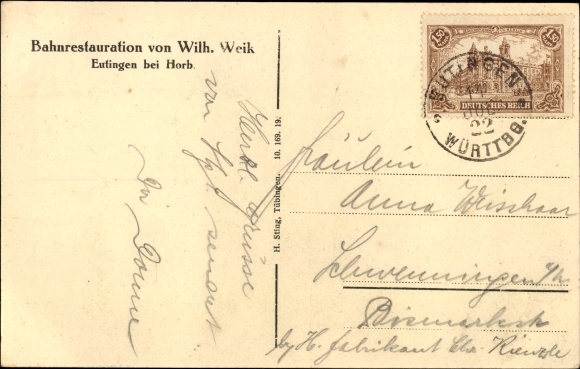 Bahnrestauration von Wilh. Weik
Eutingen bei Horb.
Herzl. Grüsse
von
H. Sting, Tübingen. 10. 169. 19.
1,50
1,50
DEUTSCHES REICH
EUTINGEN
22
WÜRTTBG.
Fräulein
Anna Weisshaar
Schwenningen a/N
Bismarckstr
by H. Fabrikant Chr. Kienzle